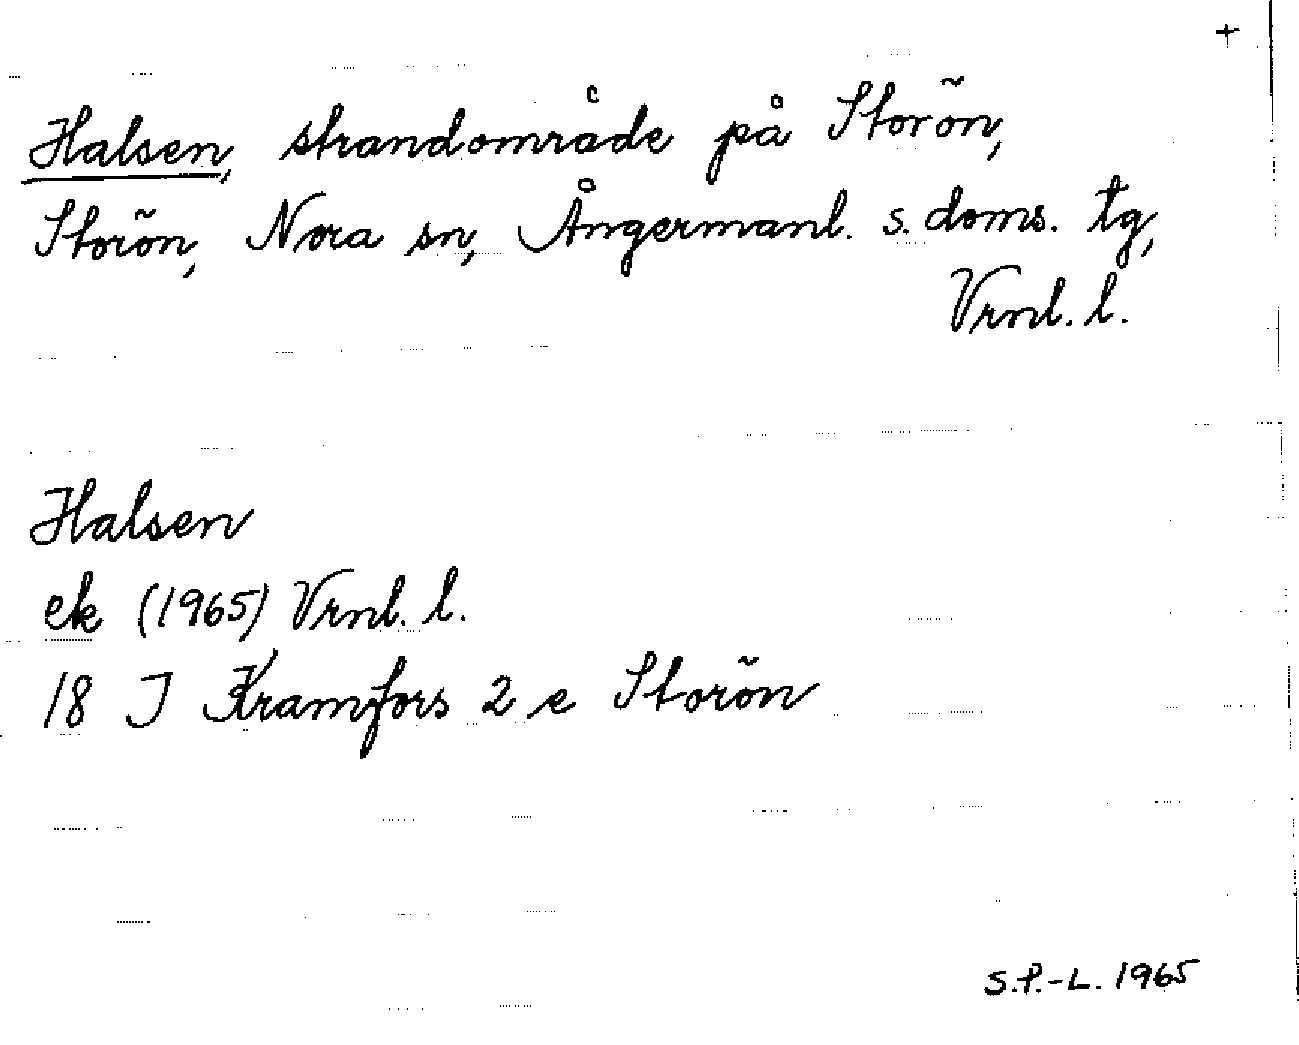 +
Halsen, strandområde på Storön,
Storön, Nora sn, Ångermanl. s. doms. tg,
Vrnl. l.
Halsen
ek (1965) Vrnl. l.
18 I Kramfors 2 e Storön
S.P.-L. 1965